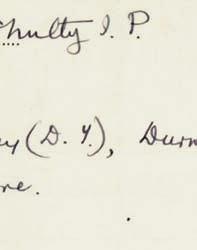 Chulty I. P.
ey (D. Y.), Durn
re.